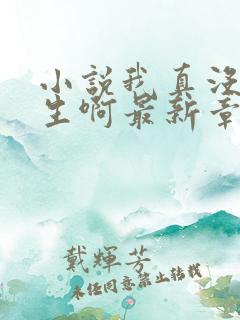 小說我真没
生啊最新章
戴輝芳
未经同意禁止转载